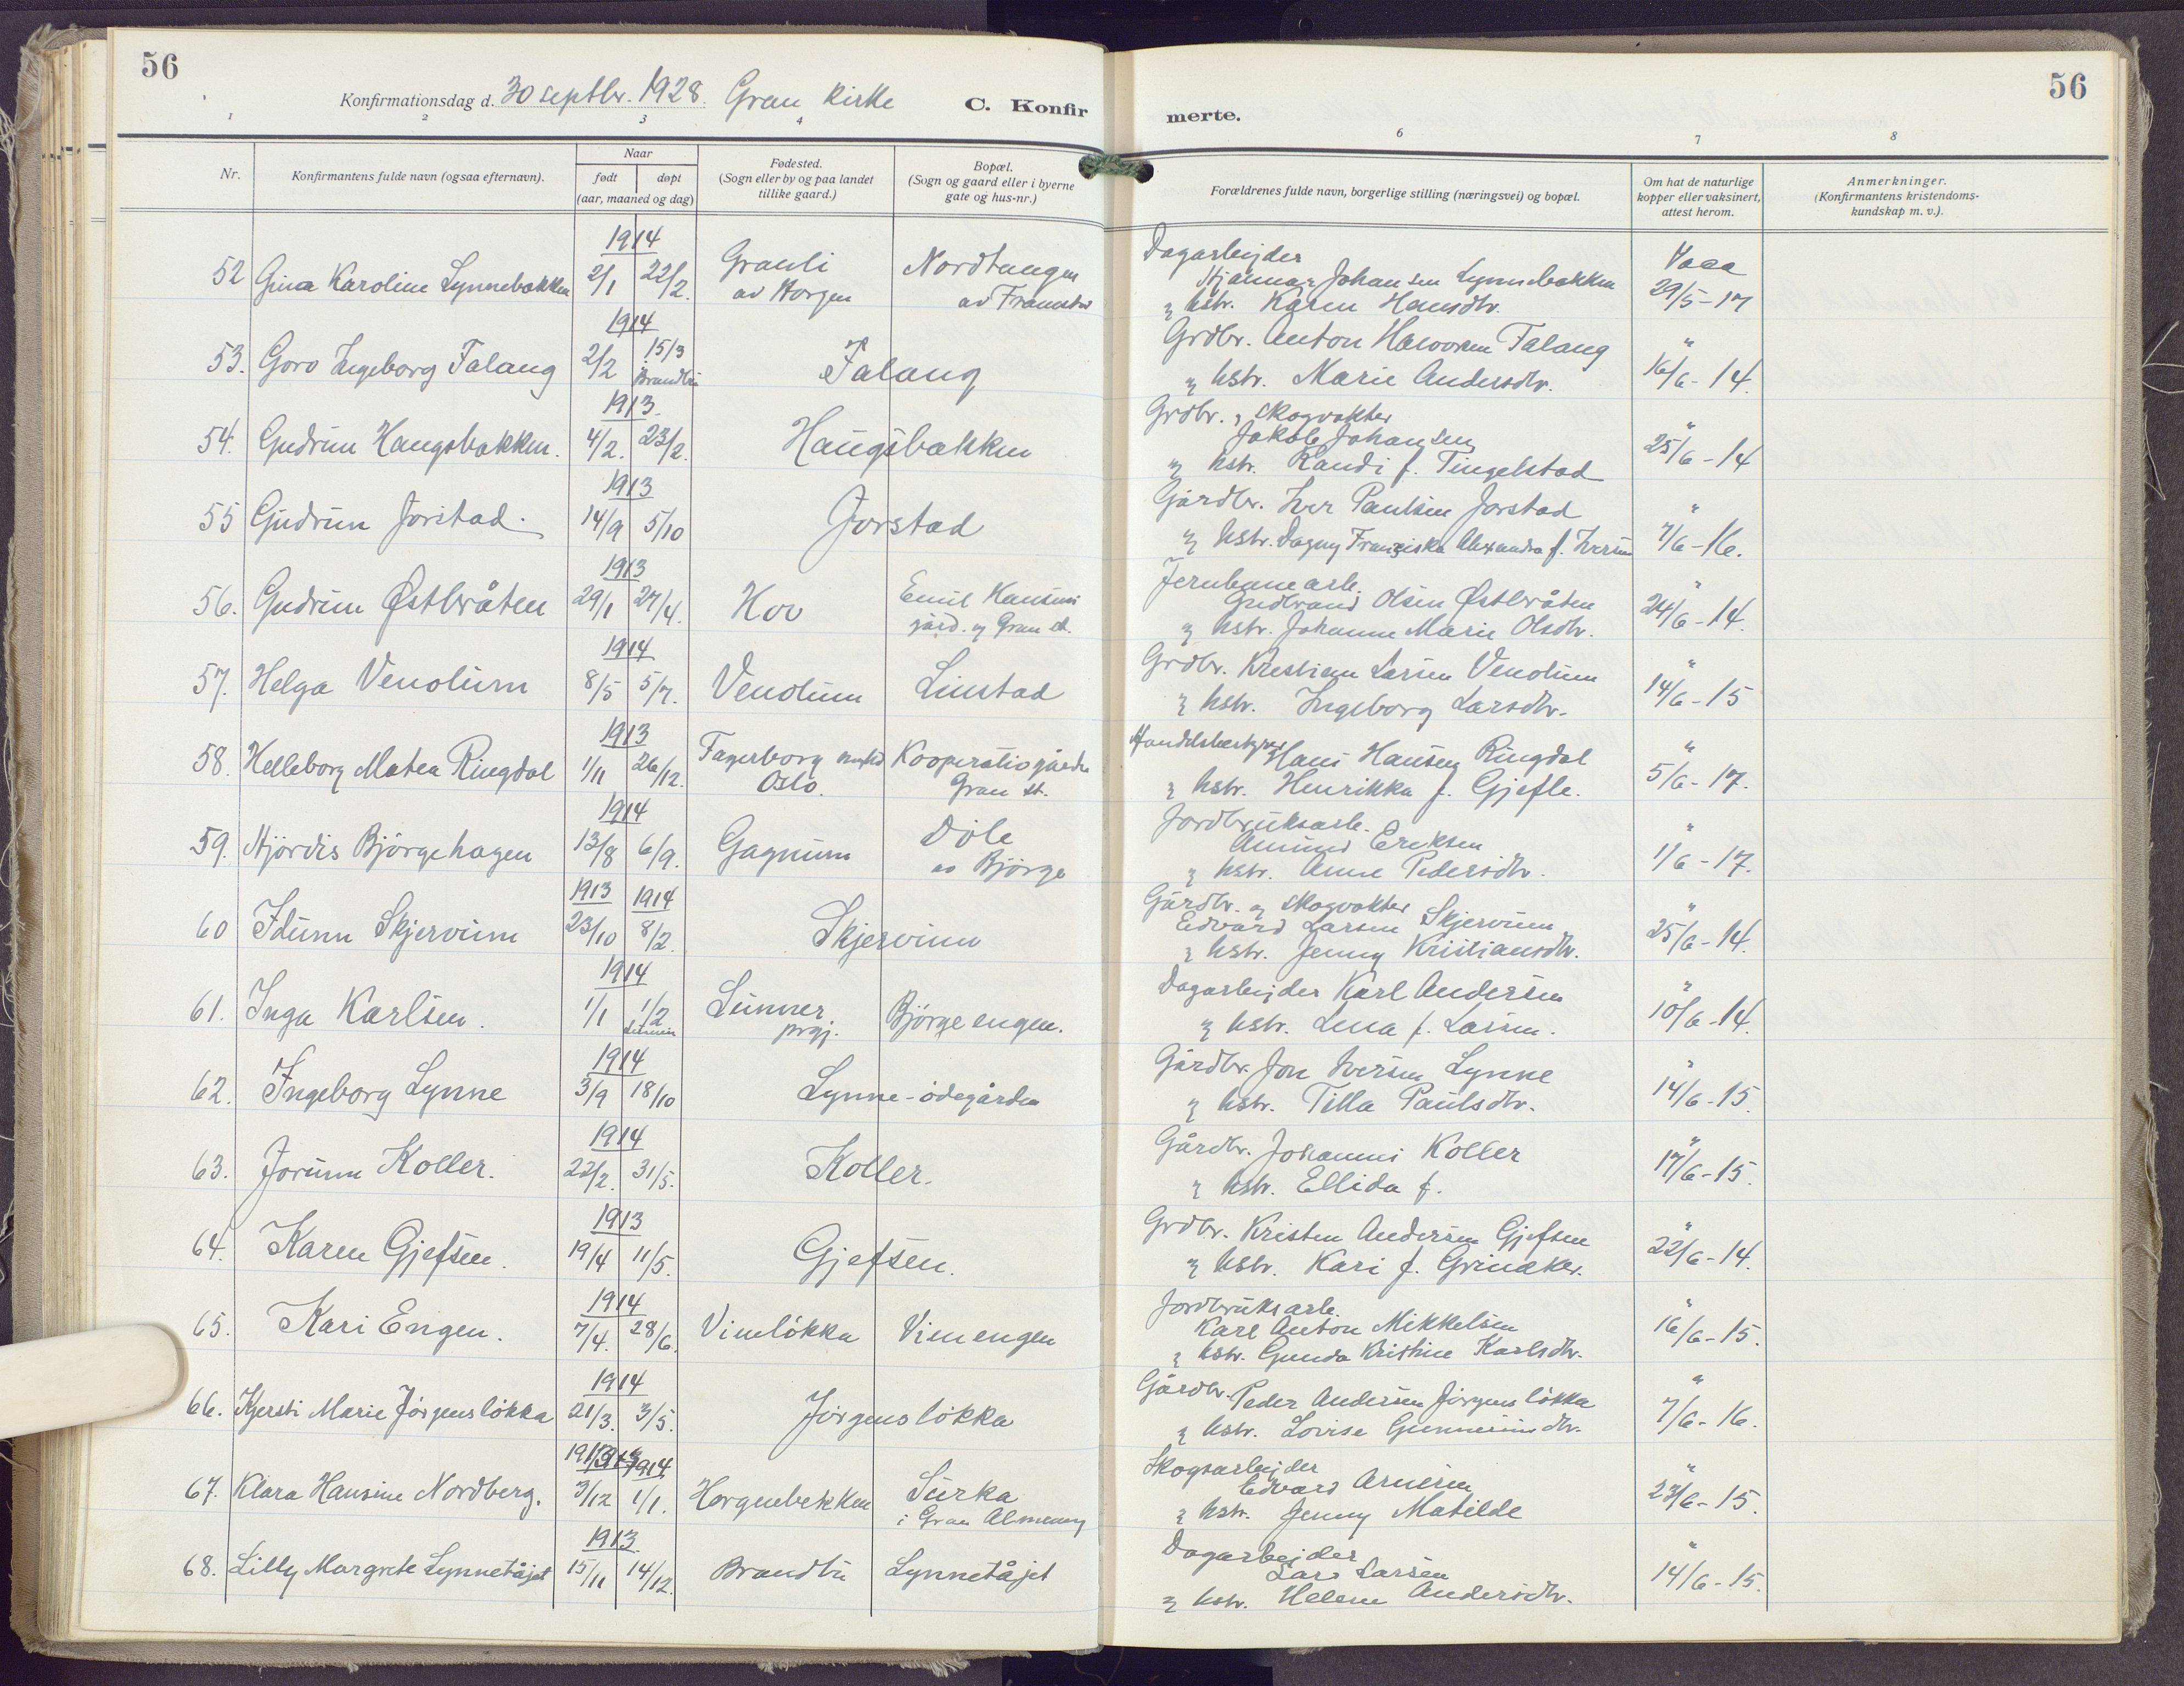 56
Konfirmationsdag d. 30 septbr. 1928. Gran kirke
C. Konfirmerte.
56
1 2 3 4 6 7 8
Nr.
Konfirmantens fulde navn (ogsaa efternavn).
Naar
født døpt
(aar, maaned og dag)
Fødested.
(Sogn eller by og paa landet
tillike gaard.)
Bopæl.
(Sogn og gaard eller i byerne
gate og hus-nr.)
Forældrenes fulde navn, borgerlige stilling (næringsvei) og bopæl.
Om hat de naturlige
kopper eller vaksinert,
attest herom.
Anmerkninger.
(Konfirmantens kristendoms-
kundskap m. v.).
1914 Dagarbejder Vacc
52 Gina Karoline Lynnebakken 2/1 22/2. Granli Nordtangen Hjalmar Johansen Lynnebakken 29/5-17
av Horgen av Framstad & hstr. Karen Hansdtr.
1914 Grdbr. Anton Halvorsen Falang "
53. Goro Ingeborg Falang 2/2 15/3 Falang & hstr. Marie Andersdtr. 16/6-14.
Brandbu
1913. Grdbr. & skogvokter "
54. Gudrun Haugsbakken. 4/2. 23/2. Haugsbakken Jakob Johansen 25/6-14
& hstr. Randi f. Tingelstad
1913 Gårdbr. Iver Paulsen Jorstad "
55 Gudrun Jorstad. 14/9 5/10 Jorstad & hstr. Dagny Franziska Alexandra f. Iversen 7/6-16.
1913 Jernbanearb. "
56. Gudrun Østbråten 29/1 27/4. Hov Emil Hansens Gudbrand Olsen Østbråten 24/6-14.
gård. Gran st. & hstr. Johanne Marie Olsdtr.
1914 Grdbr. Kristian Larsen Venolum "
57. Helga Venolum 8/5 5/7. Venolum Linstad & hstr. Ingeborg Larsdtr. 14/6-15
1913 Handelsbestyrer Hans Hansen Ringdal "
58. Helleborg Matea Ringdal 1/11 26/12. Fagerborg Kooperatisgården & hstr. Henrikka f. Gjefle. 5/6-17.
Oslo. Gran st.
1914 Jordbruksarb. "
59. Hjördis Björgehagen 13/8 6/9. Gagnum Döle Amund Eriksen 1/6-17.
av Björge & hstr. Anne Pedersdtr.
1913 1914 Gårdbr. og skogvokter "
60 Idunn Skjervum 23/10 8/2. Skjervum Edvard Larsen Skjervum 25/6-14.
& hstr. Jenny Kristiansdtr.
1914 Dagarbejder Karl Andersen "
61. Inga Karlsen. 1/1 1/2 Lunner Björgeengen. & hstr. Lena f. Larsen. 10/6-14.
Lunner prgj.
1914 Gårdbr. Jon Iversen Lynne "
62. Ingeborg Lynne 3/9 18/10 Lynne-ödegården & hstr. Tilla Paulsdtr. 14/6-15.
1914 Gårdbr. Johannes Koller "
63. Jorunn Koller. 22/2. 31/5. Koller. & hstr. Ellida f. 17/6-15.
1913 Grdbr. Kristen Andersen Gjefsen "
64. Karen Gjefsen. 19/4 11/5. Gjefsen. & hstr. Kari f. Grinaker. 22/6-14.
1914 Jordbruksarb. "
65. Kari Engen. 7/4. 28/6. Vimlökka Vimengen Karl Anton Mikkelsen 16/6-15.
& hstr. Gunda Kristine Karlsdtr.
1914 Gårdbr. Peder Andersen Jörgenslökka "
66. Kjersti Marie Jörgenslökka 21/3. 3/5. Jörgenslökka & hstr. Lovise Gunneriusdtr. 7/6-16.
1913 1914 Skogsarbejder "
67. Klara Hansine Nordberg. 3/12 1/1. Horgenbekken Surka Edvard Arnesen 23/6-15.
i Gran Almenng & hstr. Jenny Matilde
1913. Dagarbejder "
68. Lilly Margrete Lynnetåjet 15/11 14/12. Brandbu Lynnetåjet Lars Larsen 14/6-15.
& hstr. Helene Andersdtr.